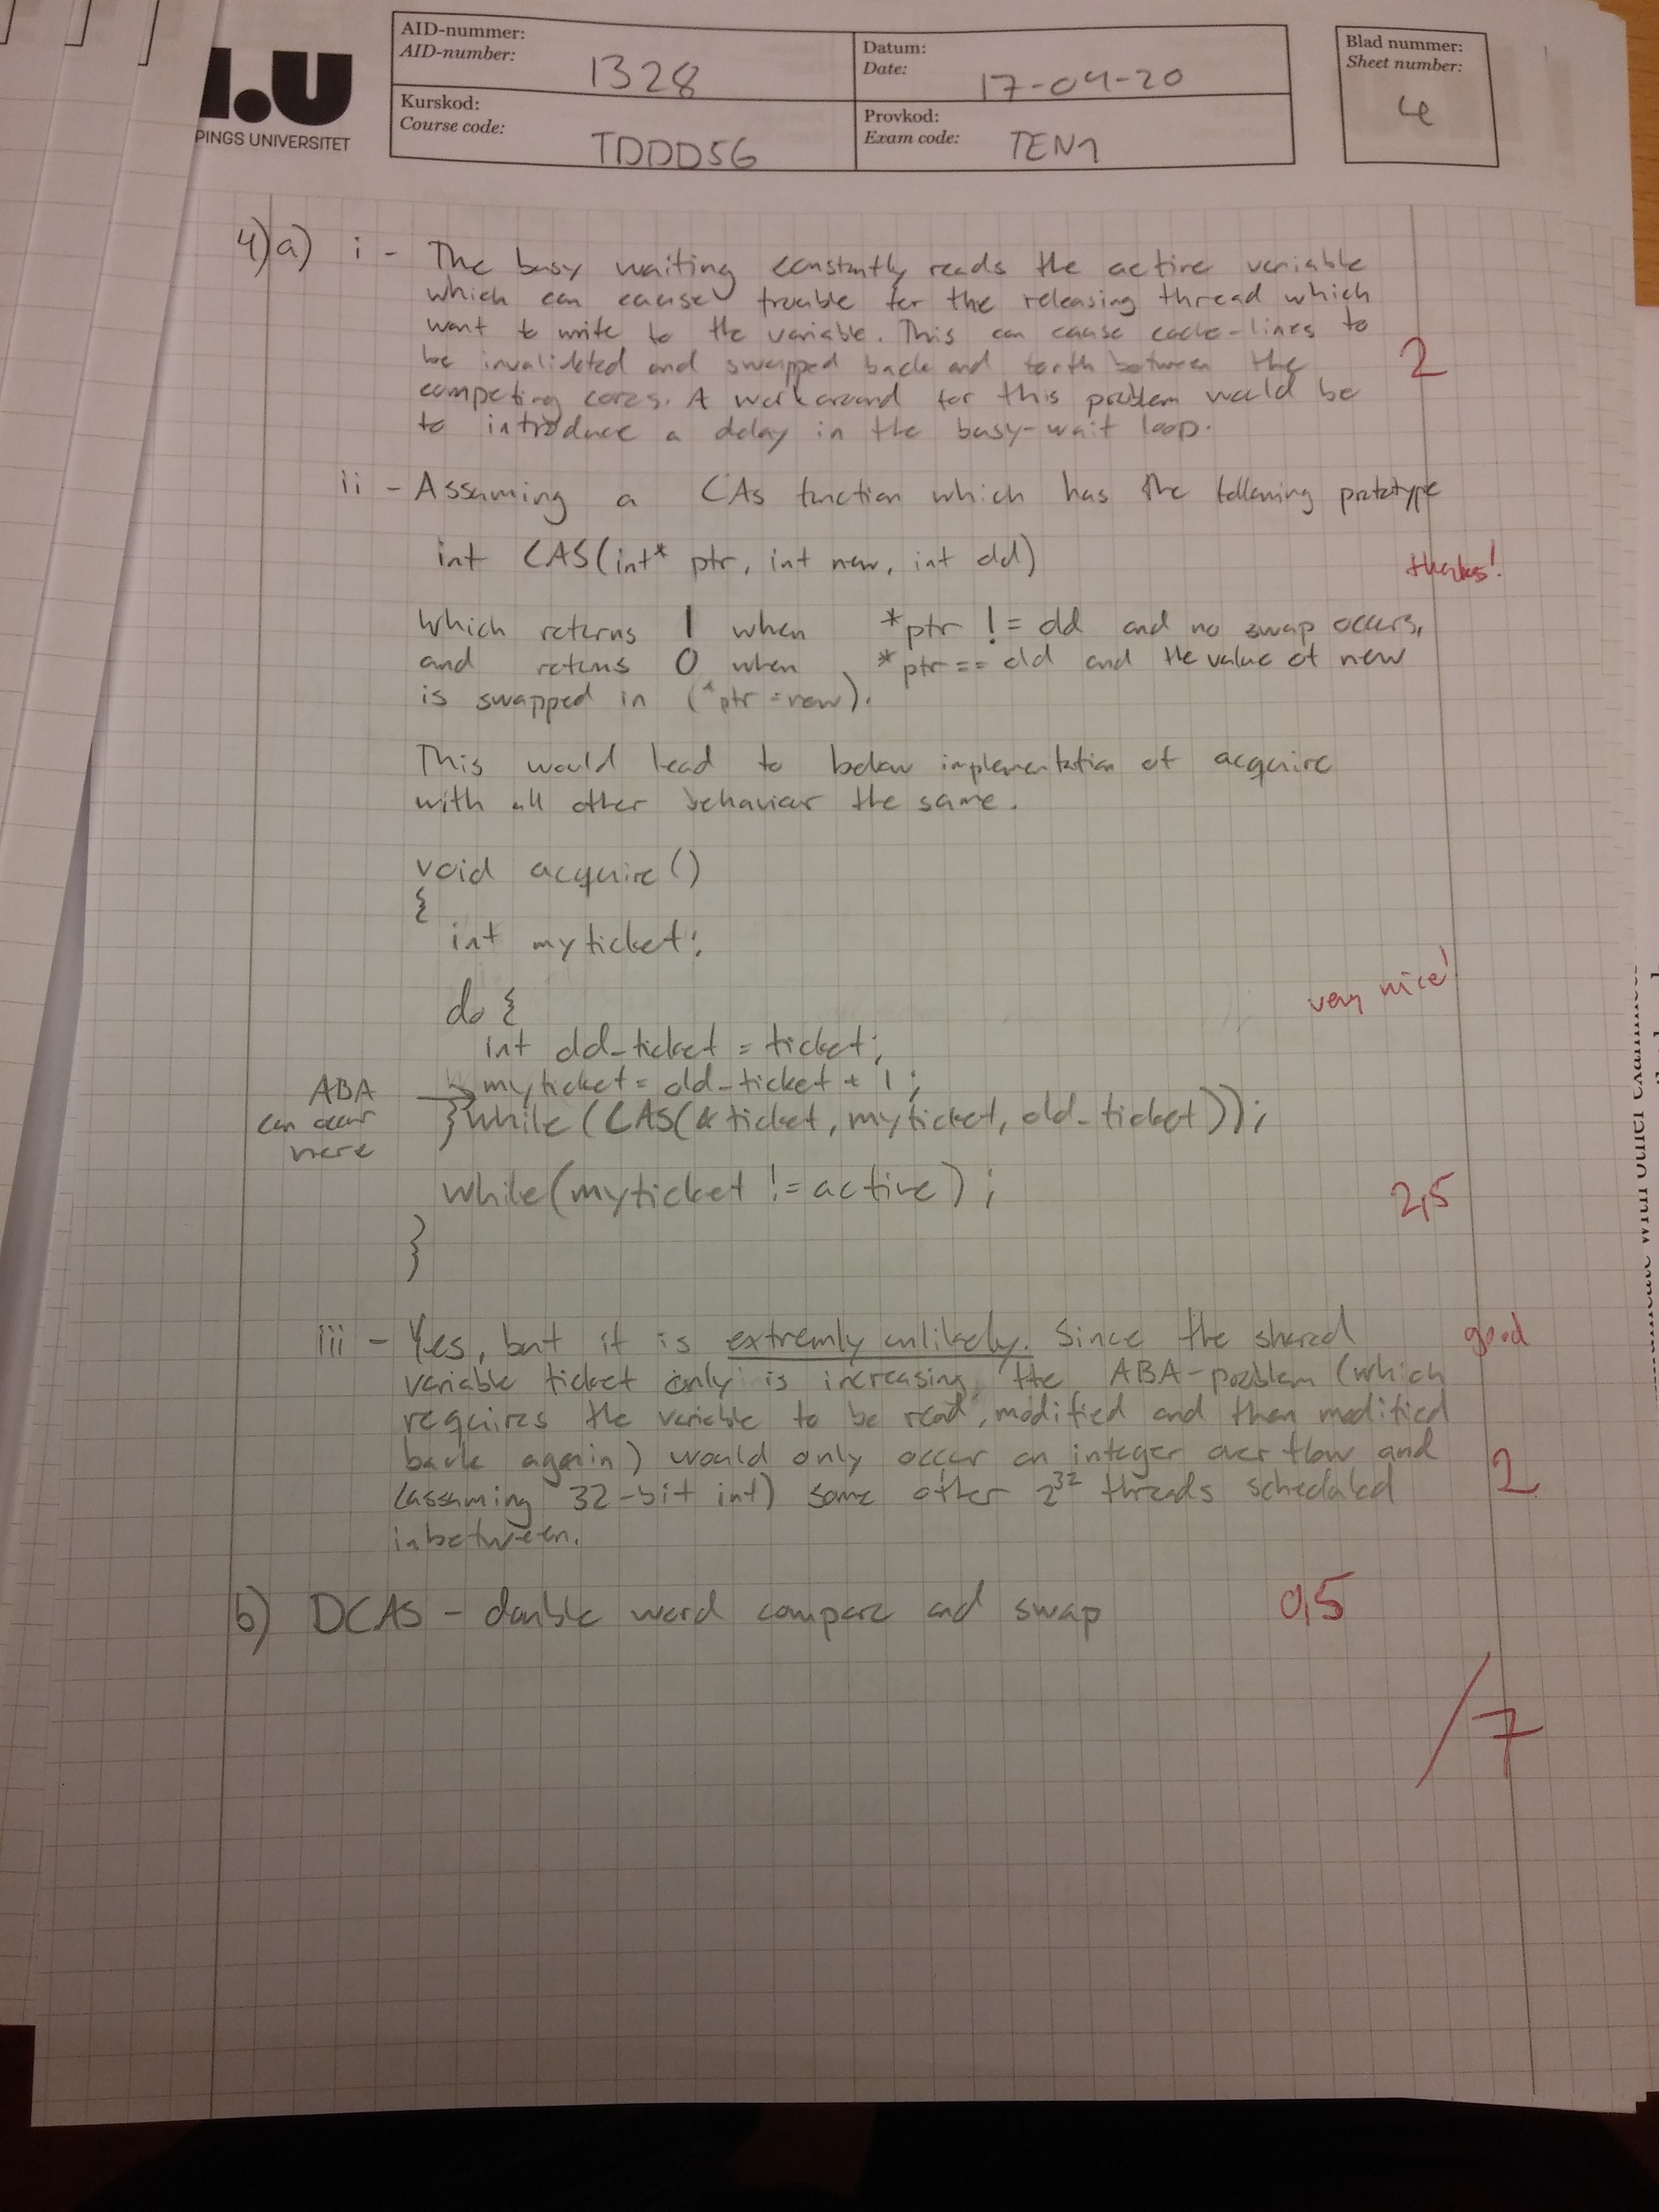 AID-nummer:
AID-number:
1328
Datum:
Date:
17-04-20
Blad nummer:
Sheet number:
4
Kurskod:
Course code:
TDDD56
Provkod:
Exam code:
TEN1
I.U
PINGS UNIVERSITET
4)a) i - The busy waiting constantly reads the active variable
which can cause trouble for the releasing thread which
want to write to the variable. This can cause cache-lines to
be invalidated and swapped back and forth between the
2
competing cores. A workaround for this problem would be
to introduce a delay in the busy-wait loop.
ii - Assuming a CAS function which has the following prototype
int CAS(int* ptr, int new, int old)
thanks!
Which returns 1 when *ptr != old and no swap occurs,
and returns 0 when *ptr == old and the value of new
is swapped in (*ptr = new).
This would lead to below implementation of acquire
with all other behaviour the same.
void acquire()
{
int myticket;
very nice!
do {
int old_ticket = ticket;
myticket = old_ticket + 1;
ABA
can occur
here
} while (CAS(&ticket, myticket, old_ticket));
while(myticket != active);
2,5
}
iii - Yes, but it is extremly unlikely. Since the shared
good
variable ticket only is increasing, the ABA-problem (which
requires the variable to be read, modified and then modified
back again) would only occur on integer overflow and
(assuming 32-bit int) some other 2^32 threads scheduled
2
inbetween.
b) DCAS - double word compare and swap
0,5
/7